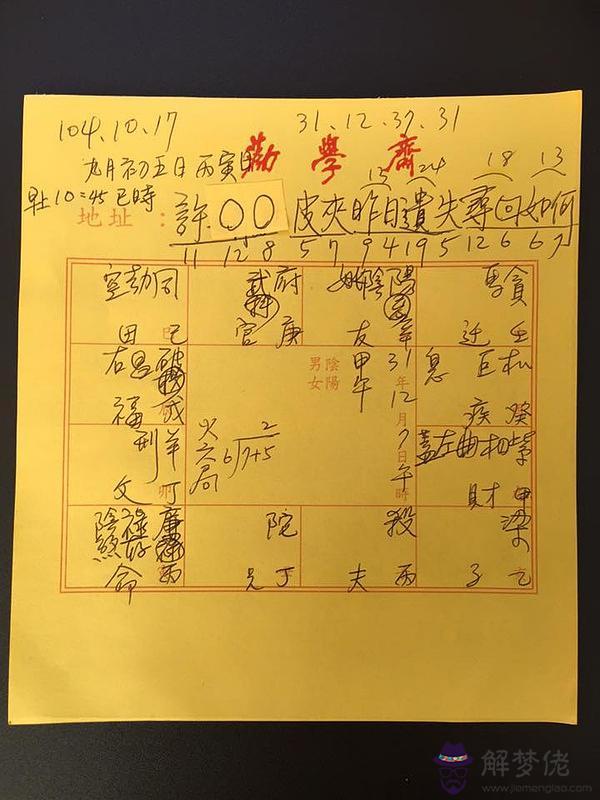 104.10.17 31.12.37.31
九月初五日丙寅日
勸學齋
早上10:45巳時
13 24 18 13
地址：許〇〇皮夾昨日遺失尋回如何
11 12 8 5 7 9 4 19 5 12 6 6 7
空劫同
巳
田
府
庚
官
陰陽
辛
友
馬貪
壬
迁
右昌破
戊
福
甲午
陰陽
男女
31年
12月
7日
午時
息巨
癸
疾
火六局
2
6 7+5
刑羊
卯
丁
父
蓋左曲相紫
甲
財
陰煞祿廉
丙
命
丁
兄
殺
丙
夫
梁
乙
子
解梦佬
www.jiemenglao.com